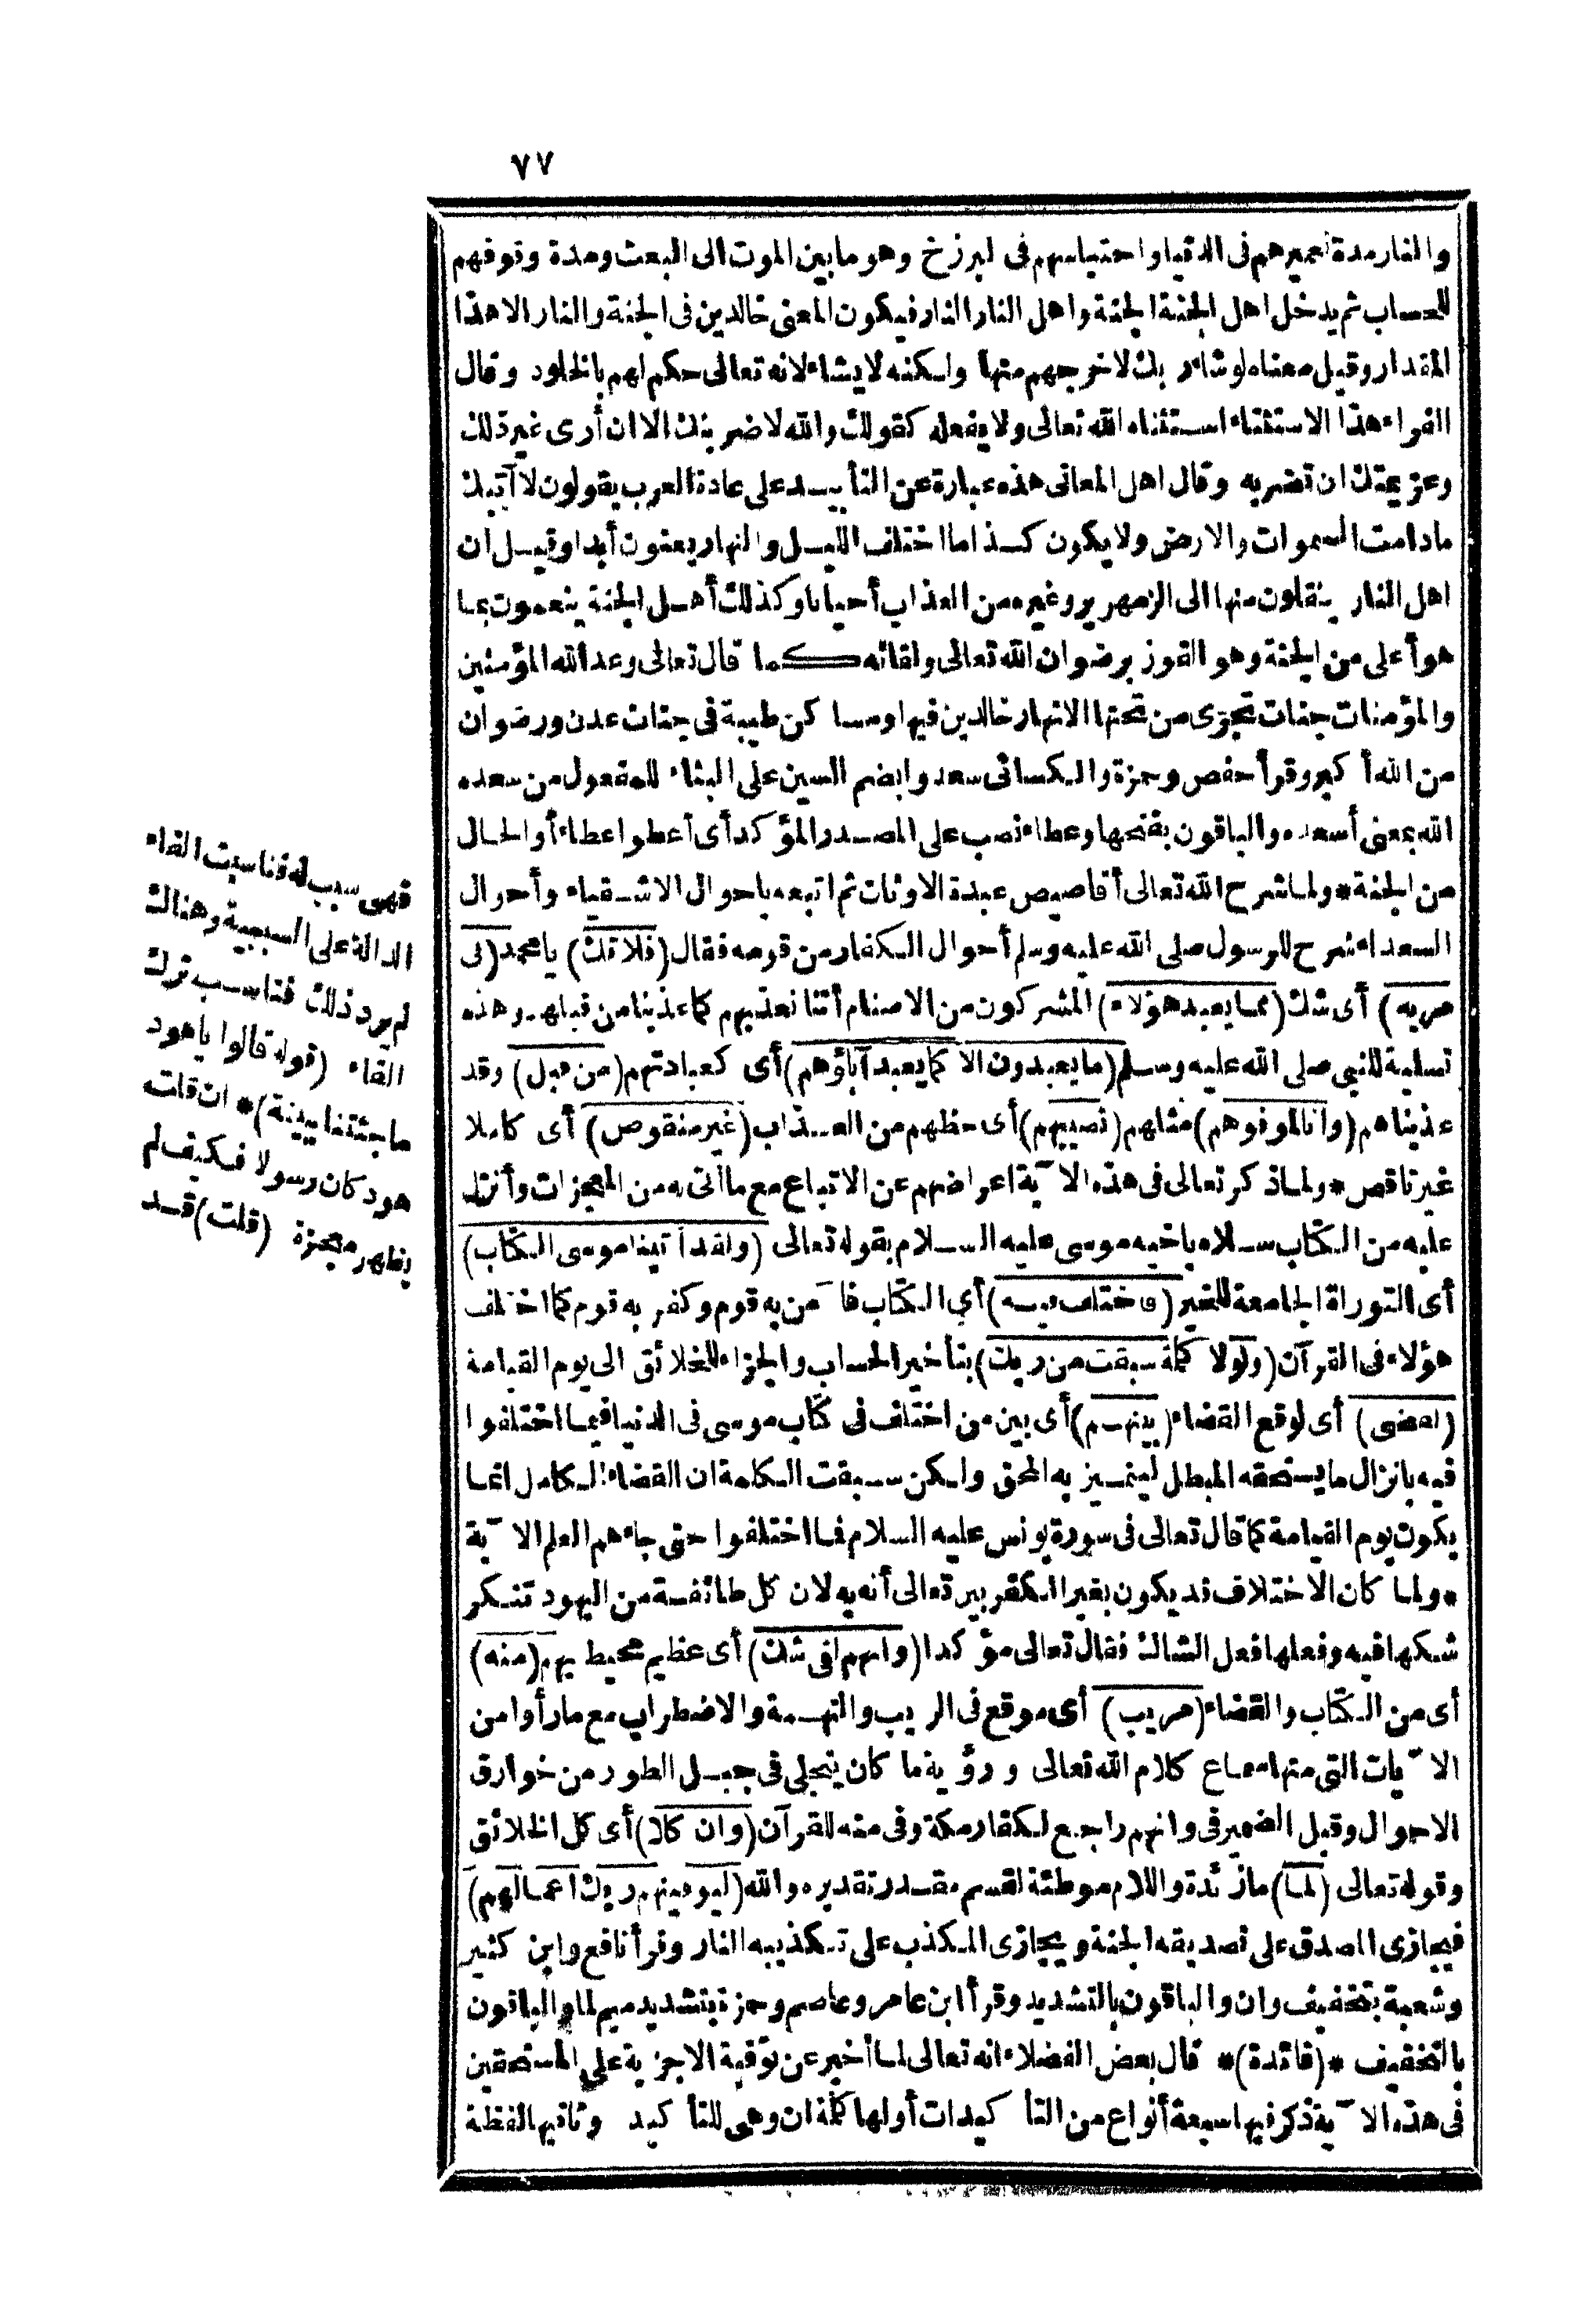 ٧٧
والنار مدة تعميرهم فى الدنيا واحتباسهم فى البرزخ وهو ما بين الموت الى البعث ومدة وقوفهم
للحساب ثم يدخل اهل الجنة الجنة واهل النار النار فيكون المعنى خالدين فى الجنة والنار الا هذا
المقدار وقيل معناه لو شاء ربك لاخرجهم منها ولكنه لا يشاء لانه تعالى حكم لهم بالخلود وقال
الفراء هذا الاستثناء استثناه الله تعالى ولا يفعله كقولك والله لاضربنك الا ان أرى غير ذلك
وعزيمتك ان تضربه وقال اهل المعانى هذه عبارة عن التأبيد على عادة العرب يقولون لا آتيك
مادامت السموات والارض ولا يكون كذا ما اختلف الليل والنهار يعنون أبدا وقيل ان
اهل النار ينقلون منها الى الزمهرير وغيره من العذاب أحيانا وكذلك أهل الجنة ينعمون بما
هو أعلى من الجنة وهو الفوز برضوان الله تعالى ولقائه كما قال تعالى وعد الله المؤمنين
والمؤمنات جنات تجرى من تحتها الانهار خالدين فيها ومساكن طيبة فى جنات عدن ورضوان
من الله أكبر وقرأ حفص وحمزة والكسائى سعدوا بضم السين على البناء للمفعول من سعده
الله بمعنى أسعده والباقون بفتحها وعطاء نصب على المصدر المؤكد أى أعطوا عطاء أو الحال
من الجنة * ولما شرح الله تعالى أقاصيص عبدة الاوثان ثم اتبعه باحوال الاشقياء وأحوال
السعداء شرح للرسول صلى الله عليه وسلم أحوال الكفار من قومه فقال (فلا تك) يا محمد (فى
مرية) أى شك (مما يعبد هؤلاء) المشركون من الاصنام أننا نعذبهم كما عذبنا من قبلهم وهذه
تسلية للنبى صلى الله عليه وسلم (ما يعبدون الا كما يعبد آباؤهم) أى كعبادتهم (من قبل) وقد
عذبناهم (وانا لموفوهم) مثلهم (نصيبهم) أى حظهم من العذاب (غير منقوص) أى كاملا
غير ناقص * ولما ذكر تعالى فى هذه الآية اعراضهم عن الاتباع مع ما أتى به من المعجزات وأنزل
عليه من الكتاب سلاه باخيه موسى عليه السلام بقوله تعالى (ولقد آتينا موسى الكتاب)
أى التوراة الجامعة للخير (فاختلف فيه) أى الكتاب فآمن به قوم وكفر به قوم كما اختلف
هؤلاء فى القرآن (ولولا كلمة سبقت من ربك) بتأخير الحساب والجزاء للخلائق الى يوم القيامة
(لقضى) أى لوقع القضاء (بينهم) أى بين من اختلف فى كتاب موسى فى الدنيا فيما اختلفوا
فيه بانزال ما يستحقه المبطل ليتميز به المحق ولكن سبقت الكلمة ان القضاء الكامل انما
يكون يوم القيامة كما قال تعالى فى سورة يونس عليه السلام فما اختلفوا حتى جاءهم العلم الآية
* ولما كان الاختلاف قد يكون بغير الكفر بين تعالى أنه به لان كل طائفة من اليهود تنكر
شكها فيه وفعلها فعل الشاك فقال تعالى مؤكدا (وانهم لفى شك) أى عظيم محيط بهم (منه)
أى من الكتاب والقضاء (مريب) أى موقع فى الريب والتهمة والاضطراب مع ما رأوا من
الآيات التى منها سماع كلام الله تعالى ورؤية ما كان يتجلى فى جبل الطور من خوارق
الاحوال وقيل الضمير فى وانهم راجع لكفار مكة وفى منه للقرآن (وان كلا) أى كل الخلائق
وقوله تعالى (لما) ما زائدة واللام موطئة لقسم مقدر تقديره والله (ليوفينهم ربك اعمالهم)
فيجازى المصدق على تصديقه الجنة ويجازى المكذب على تكذيبه النار وقرأ نافع وابن كثير
وشعبة بتخفيف وان والباقون بالتشديد وقرأ ابن عامر وعاصم وحمزة بتشديد ميم لما والباقون
بالتخفيف * (فائدة) * قال بعض الفضلاء انه تعالى لما أخبر عن توفية الاجزية على المستحقين
فى هذه الآية ذكر فيها سبعة أنواع من التأكيدات أولها كلمة ان وهى للتأكيد وثانيها لفظة
فهى سبب له فناسبت الفاء
الدالة على السببية وهناك
لم يرد ذلك فناسب ترك
الفاء (قوله قالوا يا هود
ما جئتنا ببينة) * ان قلت
هود كان رسولا فكيف لم
يظهر معجزة (قلت) قد